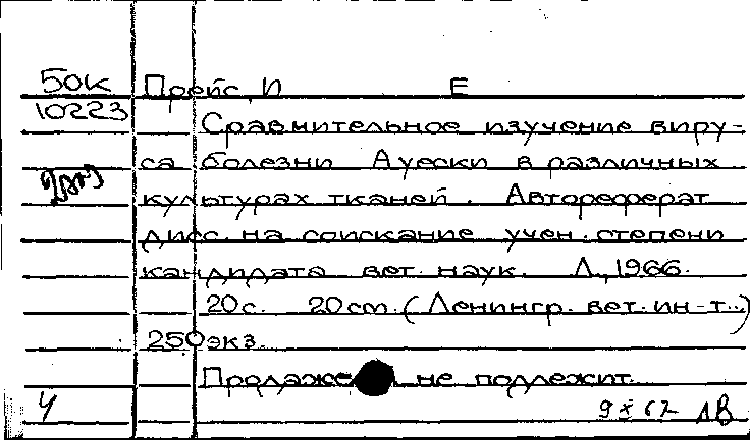 50К Прейс, И Е
10223
Сравнительное изучение виру-
са болезни Ауески в различных
культурах тканей. Автореферат
дисс. на соискание учен. степени
кандидата вет. наук. Л., 1966.
20 с. 20 cm. (Ленингр. вет. ин-т.)
250 экз.
Продаже не подлежит.
Ч 9 X 67 ЛВ